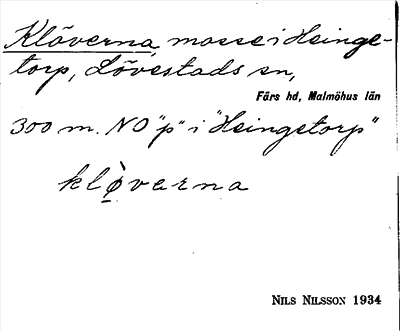 Klöverna, mosse i Heinge-
torp, Lövestads sn,
Färs hd, Malmöhus län
300 m. NO "p" i "Heingetorp"
klø̣̀verna
NILS NILSSON 1934